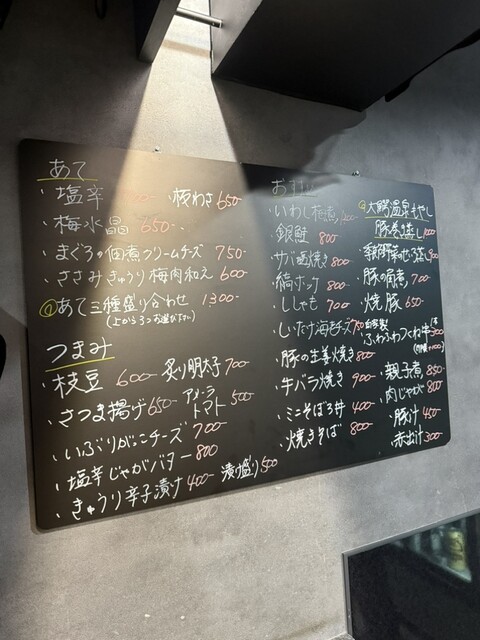 あて
・塩辛 板わさ 650-
・梅水晶 650-
・まぐろの佃煮クリームチーズ 750-
・ささみきゅうり梅肉和え 600-
◎あて三種盛り合わせ 1300-
(上から3つお選び下さい)
つまみ
・枝豆 600- 炙り明太子 700-
・さつま揚げ 650- アメーラトマト 500-
・いぶりがっこチーズ 700-
・塩辛じゃがバター 800
・きゅうり辛子漬け 400- 漬盛り 500
・いわし梅煮
・銀鮭 800-
・サバ 焼き 800-
・縞ホッケ 800-
・ししゃも 700-
・しいたけ海老チーズ
・豚の生姜焼き 800-
・牛バラ焼き 900-
・ミニそぼろ丼 400-
・焼きそば 800-
◎大鰐温泉もやし
豚巻き蒸し 1000
・豚の角煮 700-
・焼豚 650-
・自家製
ふわふわつくね串
・親子煮 850-
・肉じゃが 800
・豚汁 450-
・赤出汁 300-